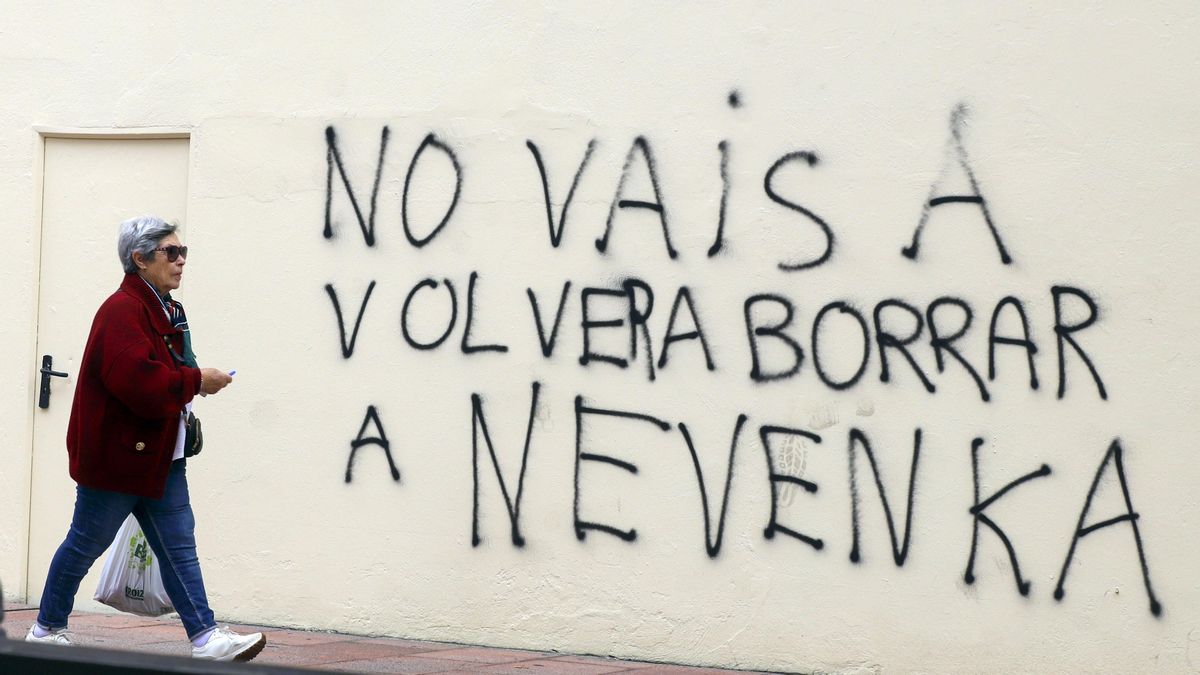 NO VAiS A
VOLVER A BORRAR
A NEVENKA